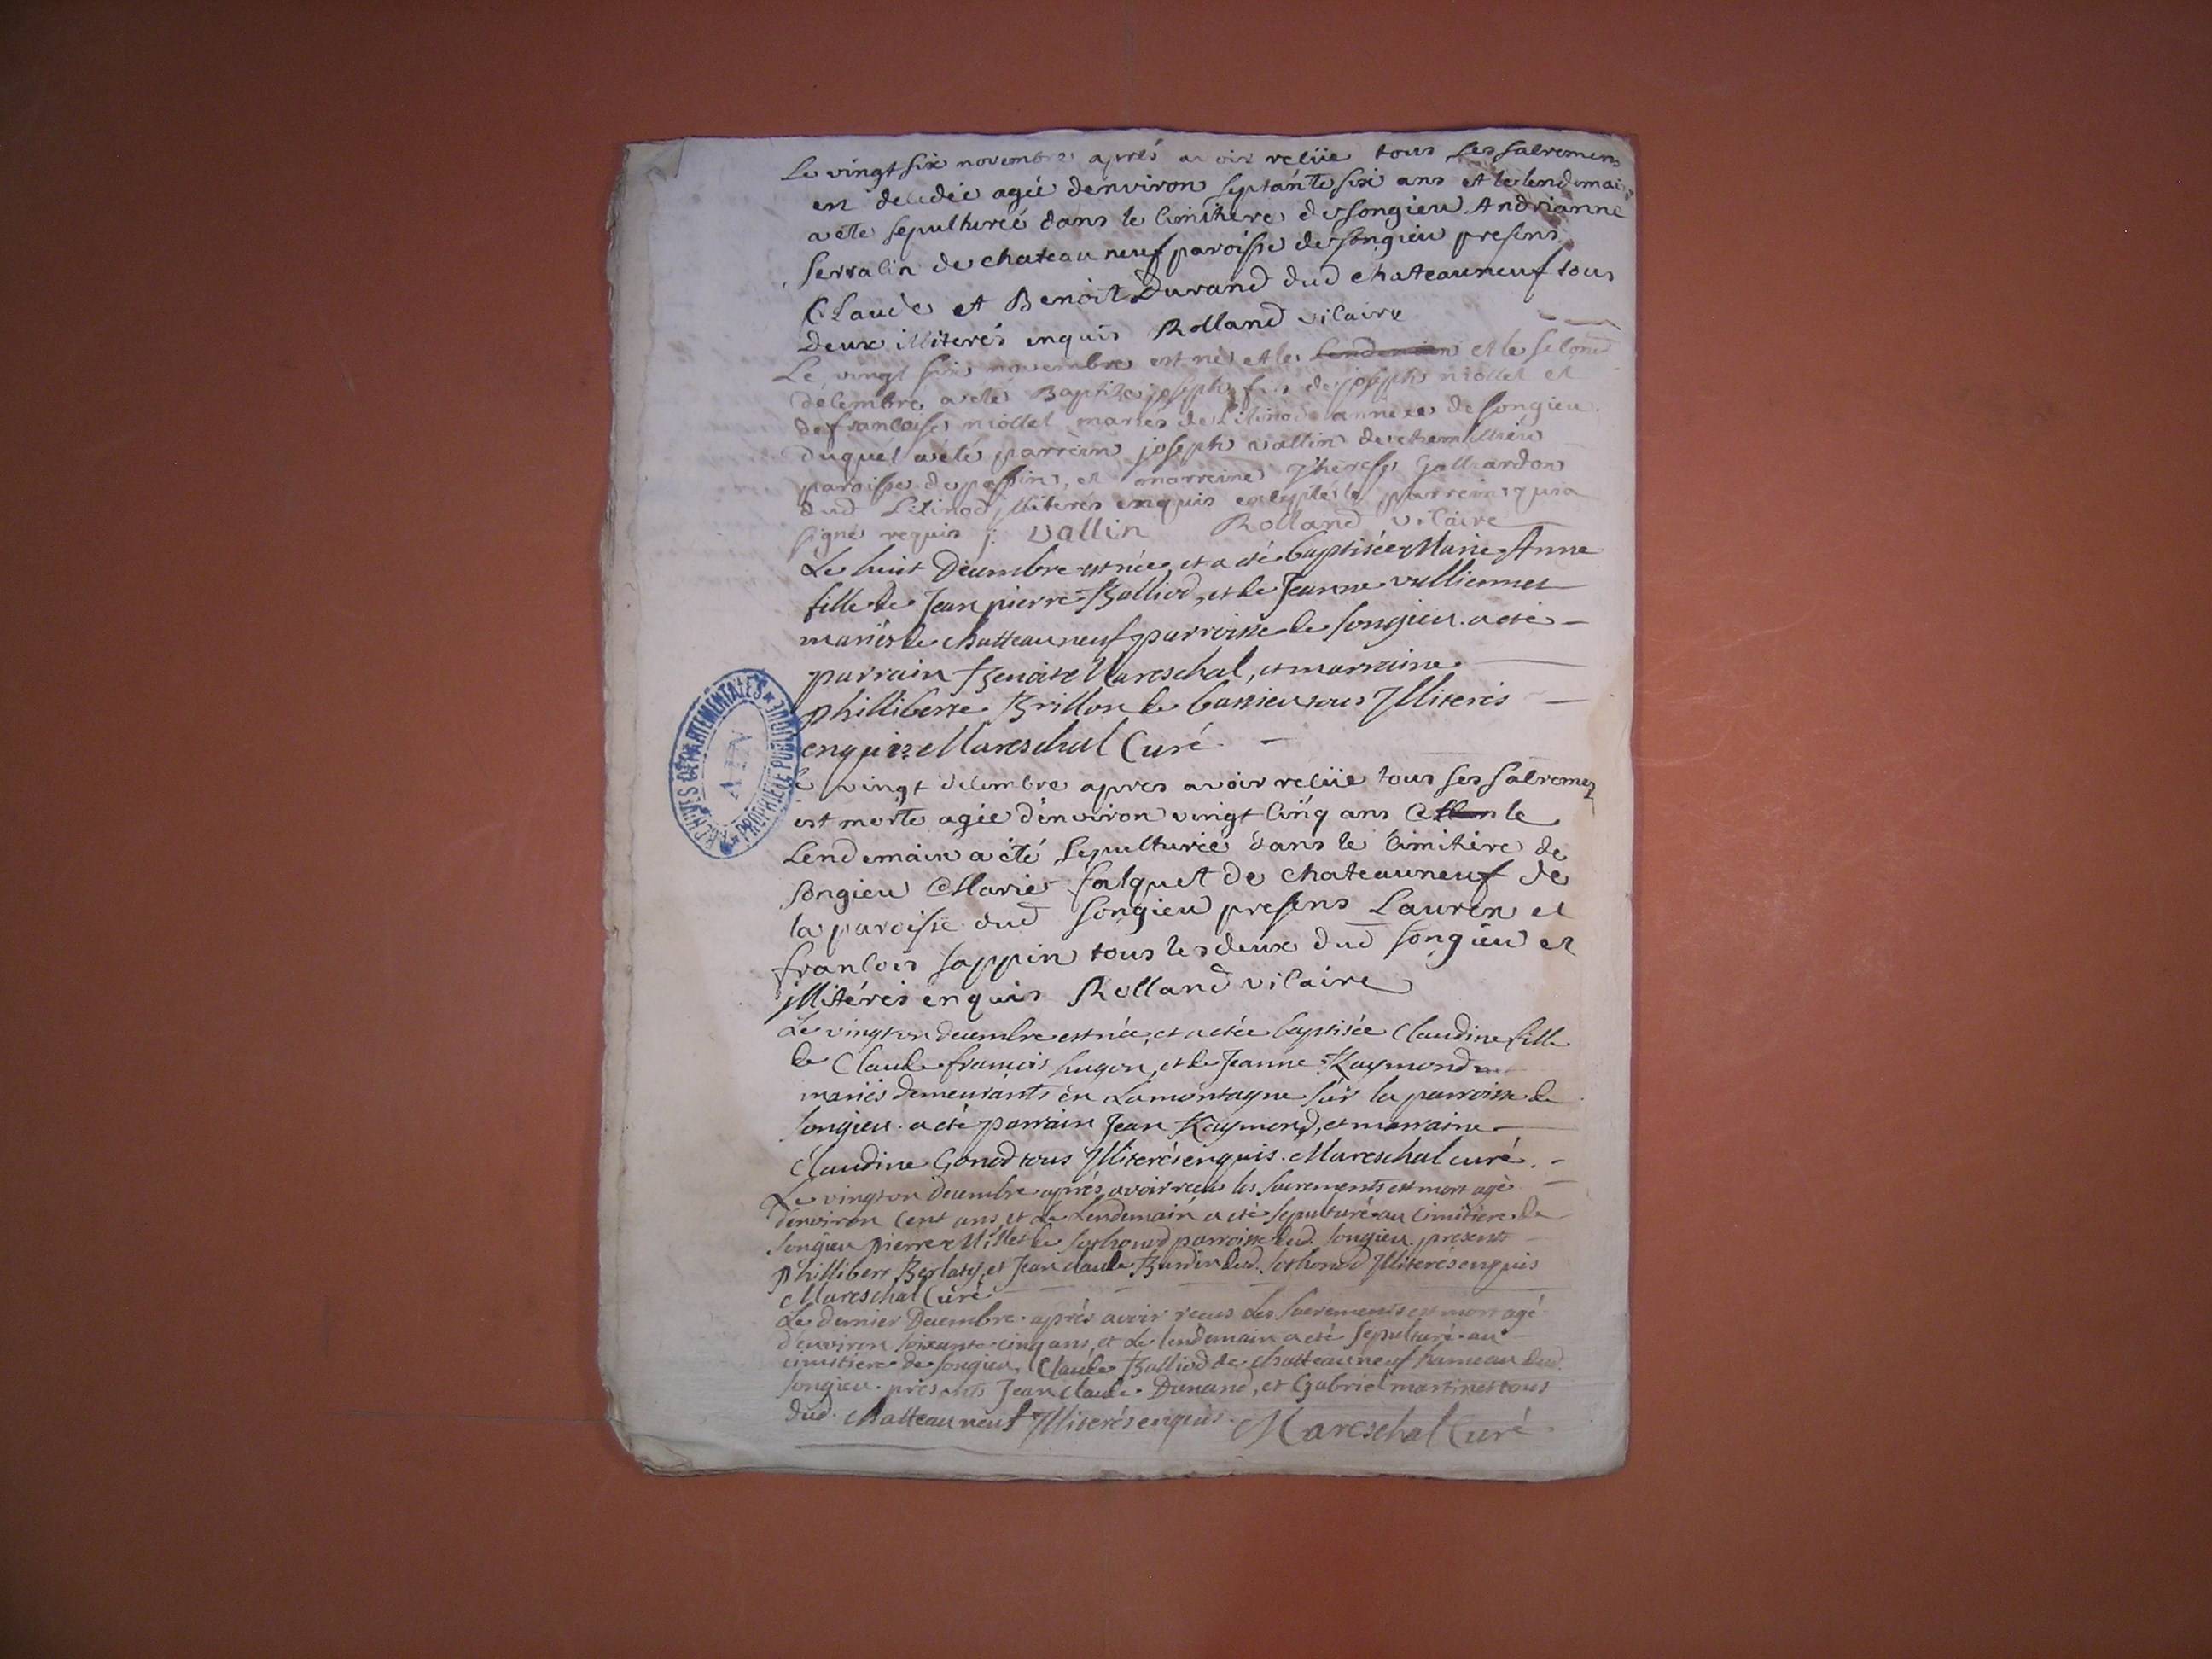 Le vingt six novembre aprés avoir relüe tous ses salremens
est decedée agée denviron septante six ans et le lendemain
a ete sepulturée dans le cimitiere de songieu Andrianne
serralin de chateauneuf paroisse de songieu presens
Claude et Benoit Durand dud chateauneuf tous
deux illiterés enquis Rolland vicaire
Le vingt six novembre est né et le lendemain et le second
decembre a eté Baptisé joseph fils de joseph niollet et
de francoise niollet mariés de Lilinod annexe de songieu
duquel a eté parrein joseph vallin de
paroisse de passin, et marreine Therese Galliardon
dud Lilinod illiterés enquis exceptés le parrein qui a
signé requis j: vallin Rolland vicaire
Le huit Decembre est née et a eté baptisée Marie Anne
fille de Jean pierre Balliod, et de Jeanne vulliermet
mariés de chatteauneuf parroisse de songieu. a eté
parrain Benoit Mareschal, et marraine
philliberte Brillon de bassieu tous Illiterés
enquis Mareschal Curé
Le vingt decembre apres avoir relüe tous ses salremens
est morte agée denviron vingt cinq ans et le
Lendemain a été sepulturée dans le cimitière de
songieu Marie falquet de chateauneuf de
la paroisse dud songieu presens Lauren et
francois sappin tous les deux dud songieu et
illitérés enquis Rolland vicaire
Le vingt un decembre est née, et a étée baptisée Claudine fille
de Claude françois hugon, et de Jeanne Raymond
mariés demeurants en Lamontagne sur la parroisse de
songieu. a eté parrain Jean Raymond, et marraine
Claudine Gonod tous Illiterés enquis. Mareschal curé.
Le vingt un Decembre aprés avoir reçus les sacrements est mort agé
denviron cent ans, et le Lendemain a eté sepulturé au cimitiere de
songieu pierre Millet de sothonod parroisse dud. songieu. presents
philibert Berlaty, et Jean claude Burdin dud. sothonod Illiterés enquis
Mareschal Curé
Le dernier Decembre aprés avoir reçus les sacrements est mort agé
d'environ soixante cinq ans, et le lendemain a eté sepulturé au
cimitiere de songieu, Claude Balliod de chatteauneuf hameau dud.
songieu. présents Jean claude Dunand, et Gabriel martinet tous
dud. chatteauneuf Illiterés enquis. Mareschal Curé
ARCHIVES DÉPARTEMENTALES
AIN
PROPRIÉTÉ PUBLIQUE